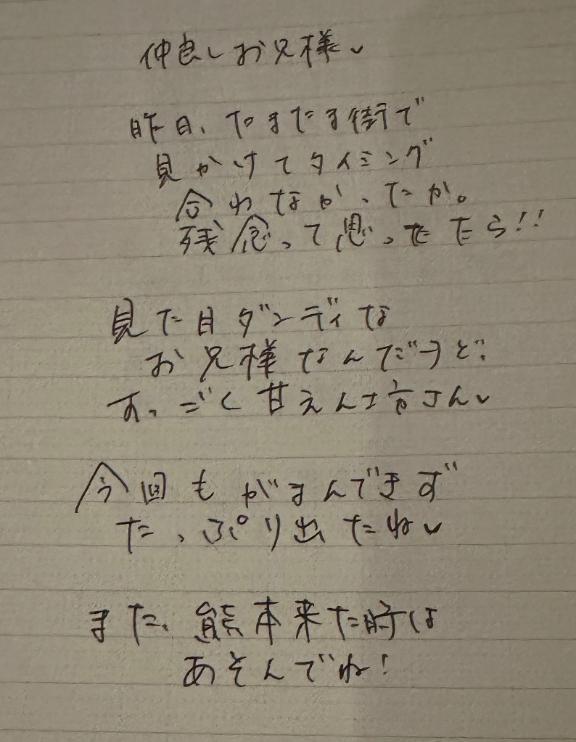 仲良しお兄様♡
昨日、たまたま街で
見かけてタイミング
合わなかったか。
残念って思ったたら!!
見た目ダンディな
お兄様なんだけど、
すっごく甘えん坊さん♡
今回もがまんできず
たっぷり出たね♡
また、熊本来た時は
あそんでね!